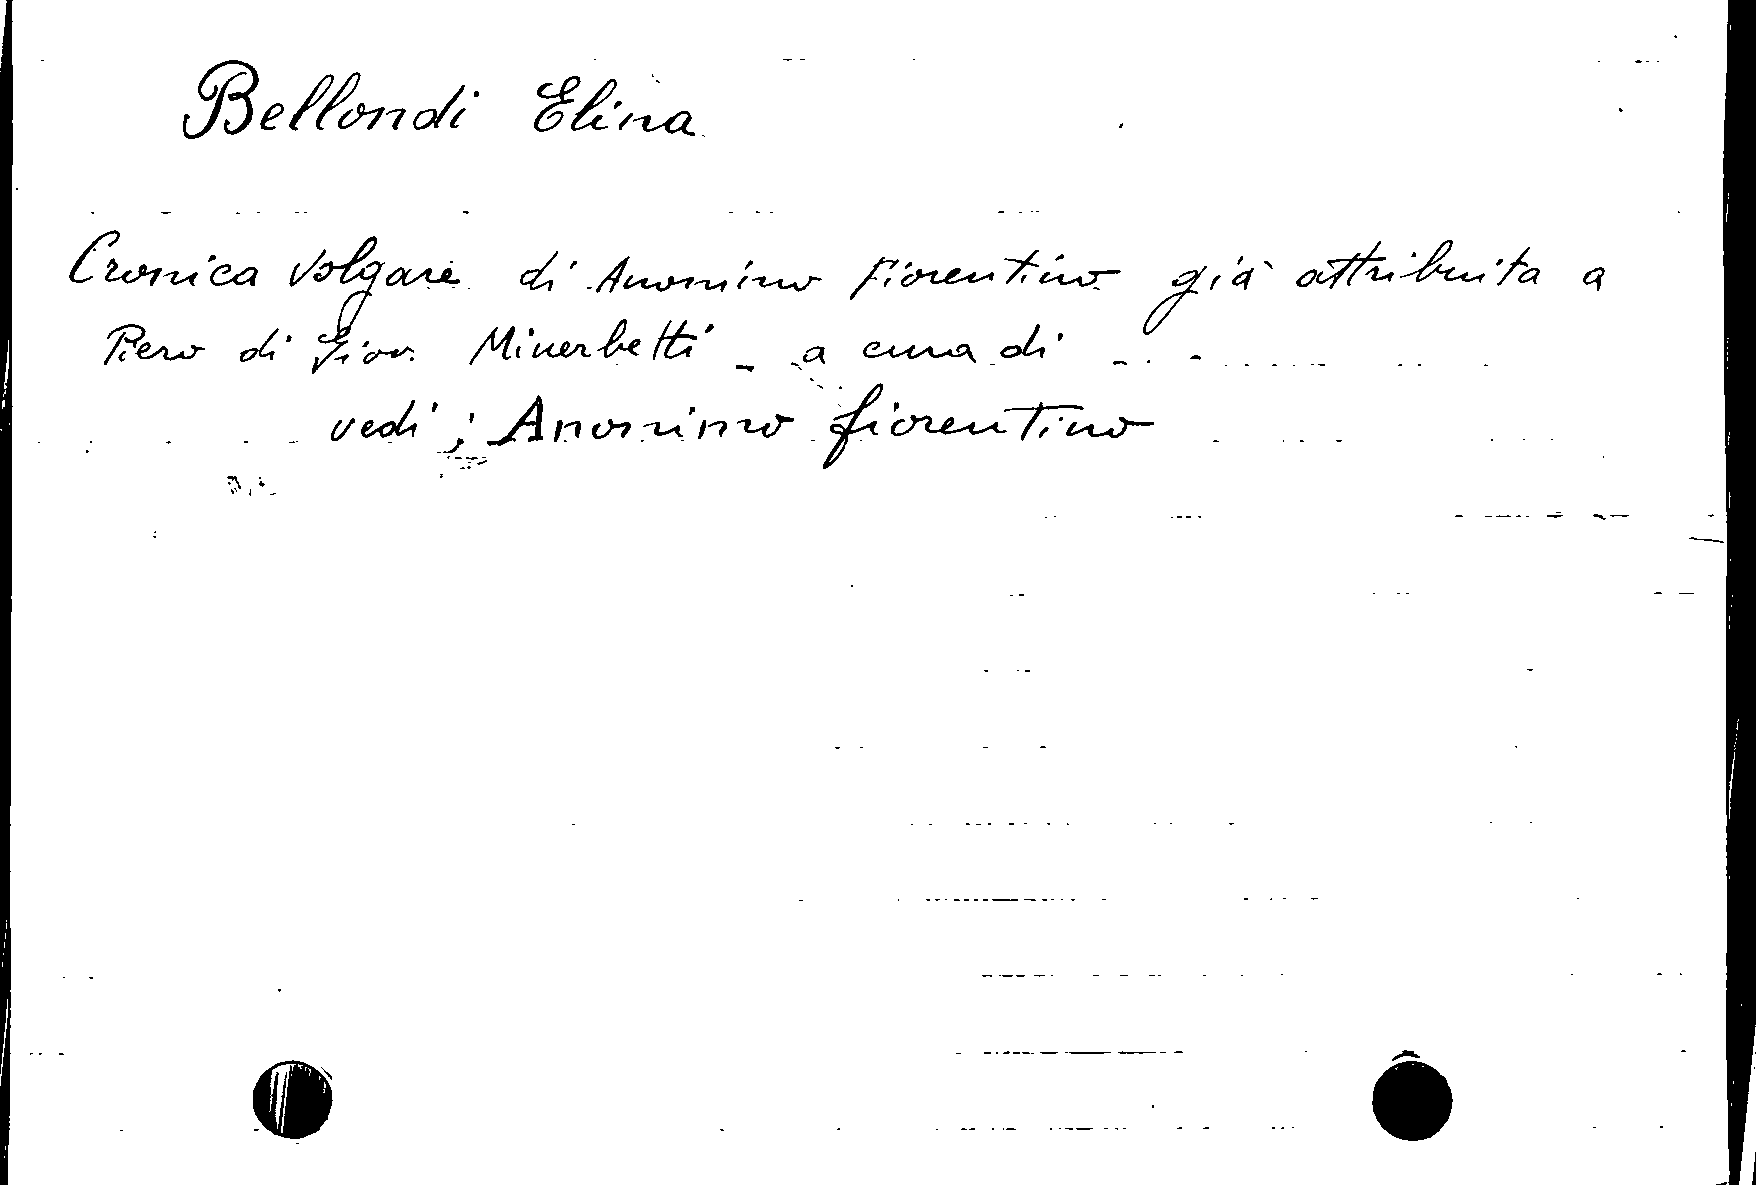 Bellondi Elina
Cronica volgare di Anonimo Fiorentino già attribuita a
Piero di Giov. Minerbetti - a cura di - . -
vedi ; Anonimo fiorentino